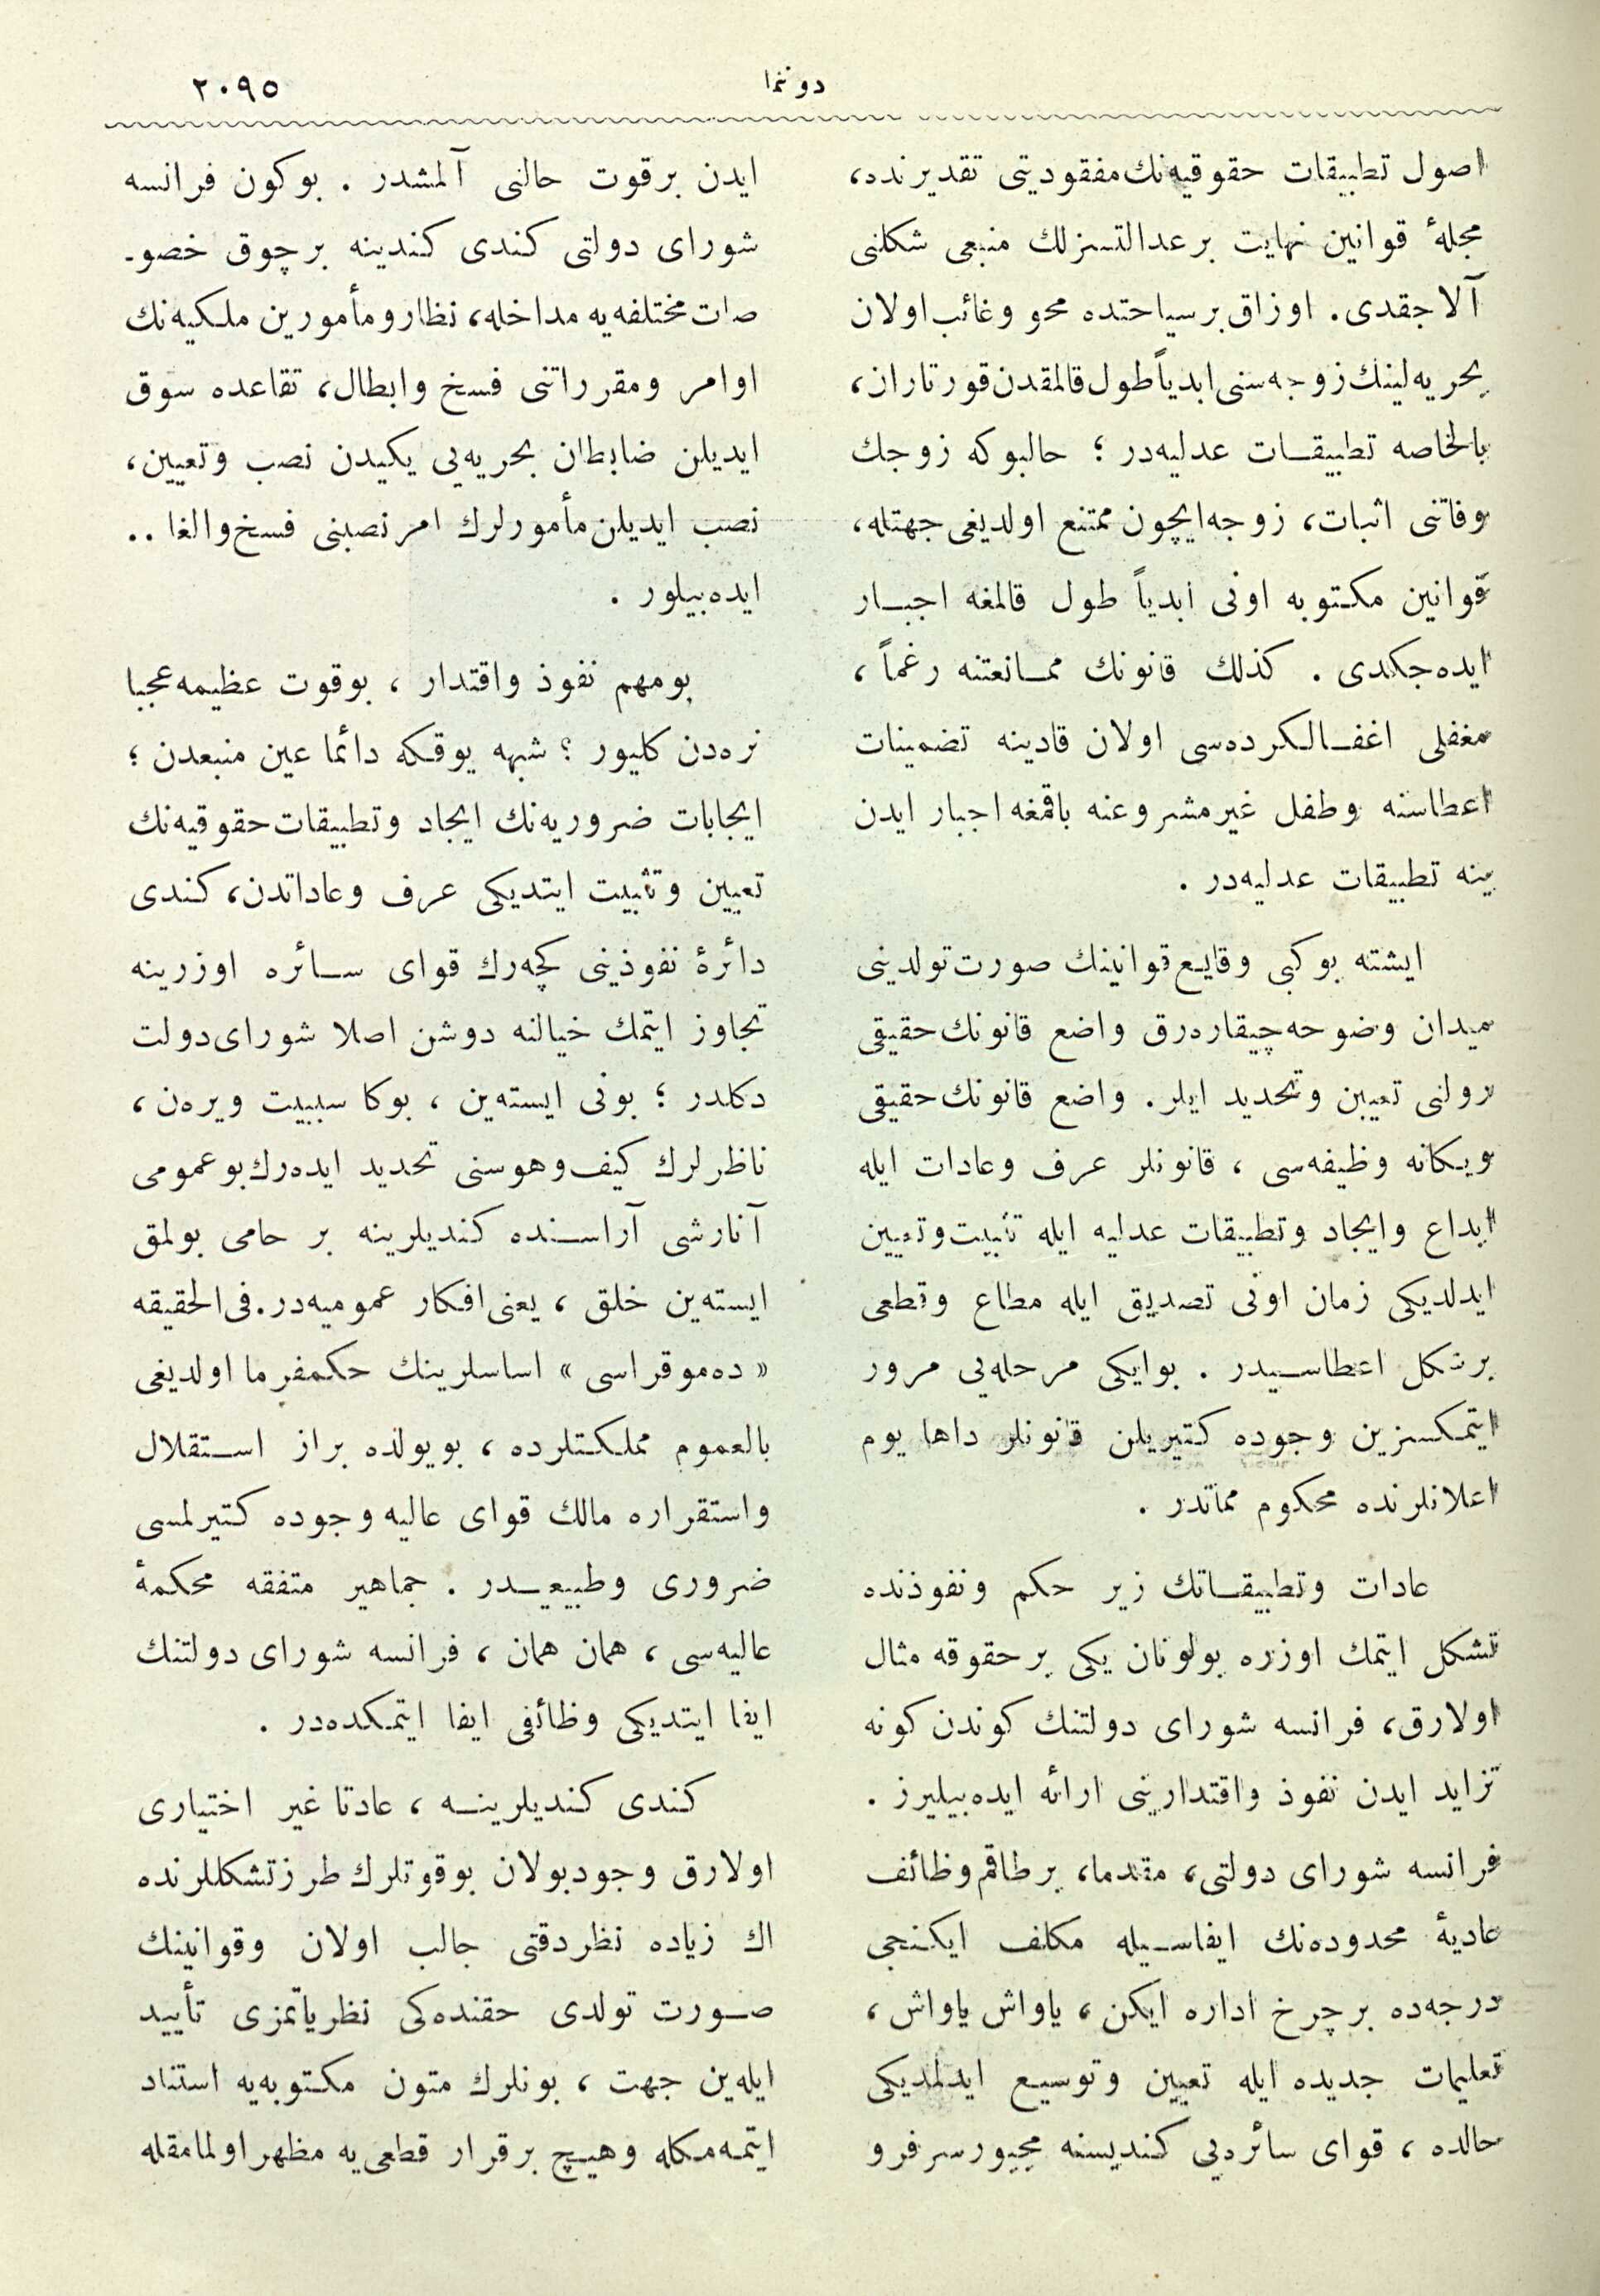 دوننما
٢٠٩٥
اصول تطبیقات حقوقیه‌نك مفقودیتی تقدیرنده،
مجلهٔ قوانین نهایت بر عدالتسزلك منبعی شكلنی
آلاجقدی. اوزاق بر سیاحتده محو و غائب اولان
بحریه‌لینك زوجه‌سنی ابدیاً طول قالمقدن قورتاران،
بالخاصه تطبیقـات عدلیه‌در ؛ حالبوكه زوجك
وفاتنی اثبات، زوجه ایچون ممتنع اولدیغی جهتله،
قوانین مكتوبه اونی ابدیاً طول قالمغه اجبـار
ایده‌جكدی . كذلك قانونك ممـانعتنه رغماً ،
مغفلی اغفـالكرده‌سی اولان قادینه تضمینات
اعطاسنه وطفل غیرمشروعنه باقمغه اجبار ایدن
ینه تطبیقات عدلیه‌در .
ایشته بوكبی وقایع قوانینك صورت تولدینی
میدان وضوحه چیقاره‌رق واضع قانونك حقیقی
رولنی تعیین وتحدید ایلر. واضع قانونك حقیقی
ویكانه وظیفه‌سی ، قانونلر عرف وعادات ایله
ابداع وایجاد وتطبیقات عدلیه ایله تثبیت وتعیین
ایدلدیكی زمان اونی تصدیق ایله مطاع وقطعی
برشكل اعطاسـیدر . بوایكی مرحله‌یی مرور
ایتمكسزین وجوده كتیریلن قانونلر داها یوم
اعلانلرنده محكوم مماتدر .
عادات وتطبیقـاتك زیر حكم ونفوذنده
تشكل ایتمك اوزره بولونان یكی بر حقوقه مثال
اولارق، فرانسه شورای دولتنك كوندن كونه
تزاید ایدن نفوذ واقتدارینی ارائه ایده‌بیلیرز .
فرانسه شورای دولتی، مقدما، برطاقم وظائف
عادیهٔ محدوده‌نك ایفاسـیله مكلف ایكنجی
درجه‌ده برچرخ اداره ایكن ، یاواش یاواش ،
تعلیمات جدیده ایله تعیین وتوسیع ایدلمدیكی
حالده ، قوای سائره‌یی كندیسنه مجبور سرفرو
ایدن برقوت حالنی آلمشدر . بوكون فرانسه
شورای دولتی كندی كندینه برچوق خصو-
صات مختلفه‌یه مداخله، نظار ومأمورین ملكیه‌نك
اوامر ومقرراتنی فسخ وابطال، تقاعده سوق
ایدیلن ضابطان بحریه‌یی یكیدن نصب وتعیین،
نصب ایدیلن مأمورلرك امر نصبنی فسخ والغا ..
ایده‌بیلور .
بومهم نفوذ واقتدار ، بوقوت عظیمه عجبا
نره‌دن كلیور ؟ شبهه یوقكه دائما عین منبعدن ؛
ایجابات ضروریه‌نك ایجاد وتطبیقات حقوقیه‌نك
تعیین وتثبیت ایتدیكی عرف وعاداتدن، كندی
دائرهٔ نفوذینی كچه‌رك قوای سـائره اوزرینه
تجاوز ایتمك خیالنه دوشن اصلا شورای دولت
دكلدر ؛ بونی ایسته‌ین ، بوكا سببیت ویره‌ن ،
ناظرلرك كیف وهوسنی تحدید ایده‌رك بو عمومی
آنارشی آراسـنده كندیلرینه بر حامی بولمق
ایسته‌ین خلق ، یعنی افكار عمومیه‌در. فی‌الحقیقه
« ده‌موقراسی » اساسلرینك حكمفرما اولدیغی
بالعموم مملكتلرده ، بویولده براز استقلال
واستقراره مالك قوای عالیه وجوده كتیرلمسی
ضروری وطبیعیـدر . جماهیر متفقه محكمهٔ
عالیه‌سی ، همان همان ، فرانسه شورای دولتنك
ایفا ایتدیكی وظائفی ایفا ایتمكده‌در .
كندی كندیلرینـه ، عادتا غیر اختیاری
اولارق وجودبولان بوقوتلرك طرز تشكللرنده
اك زیاده نظردقتی جالب اولان وقوانینك
صـورت تولدی حقنده‌كی نظریاتمزی تأیید
ایله‌ین جهت ، بونلرك متون مكتوبه‌یه استناد
ایتمه‌مكله وهیچ برقرار قطعی‌یه مظهر اولمامقله